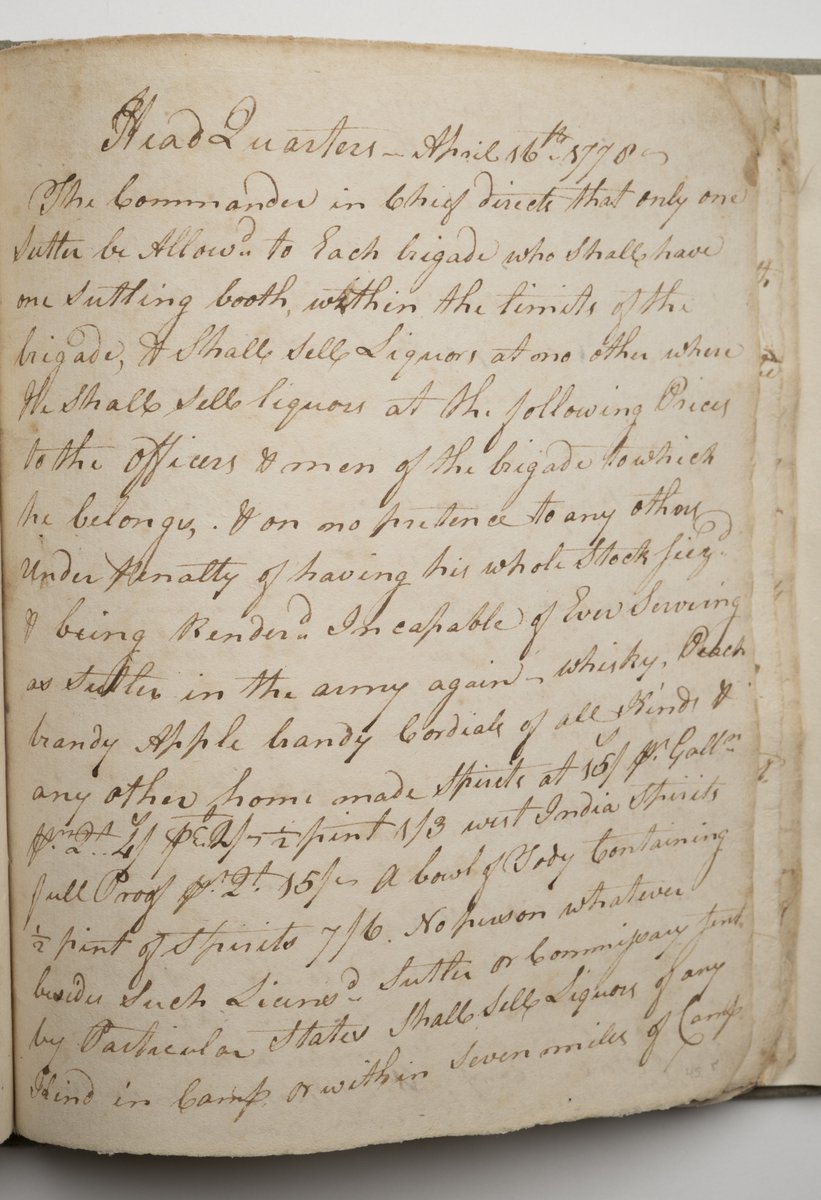 Head Quarters – April 16th 1778 –
The Commander in Chief directs that only one
Sutler be Allowd to Each brigade who shall have
one Sutling booth, within the limits of the
brigade, & Shall Sell Liquors at no other where
He Shall Sell liquors at the following Prices
to the officers & men of the brigade to which
he belongs, . & on no pretence to any others
Under Penalty of having his whole Stock Siezd
& being Renderd Incapable of Ever Serving
as Sutler in the army again – whisky, Peach
brandy Apple brandy Cordials of all Kinds &
any other home made Spirits at 15/ pr Galln
pr Qt 4/ pt 2/– ½ pint 1/3 west India Spirits
full Proof pr Qt 15/– A bowl of Tody Containing
½ pint of Spirits 7/6. No person whatever
besides Such Licensd Sutler or Commissary sent
by Particular States Shall Sell Liquors of any
Kind in Camp or within Seven miles of Camp